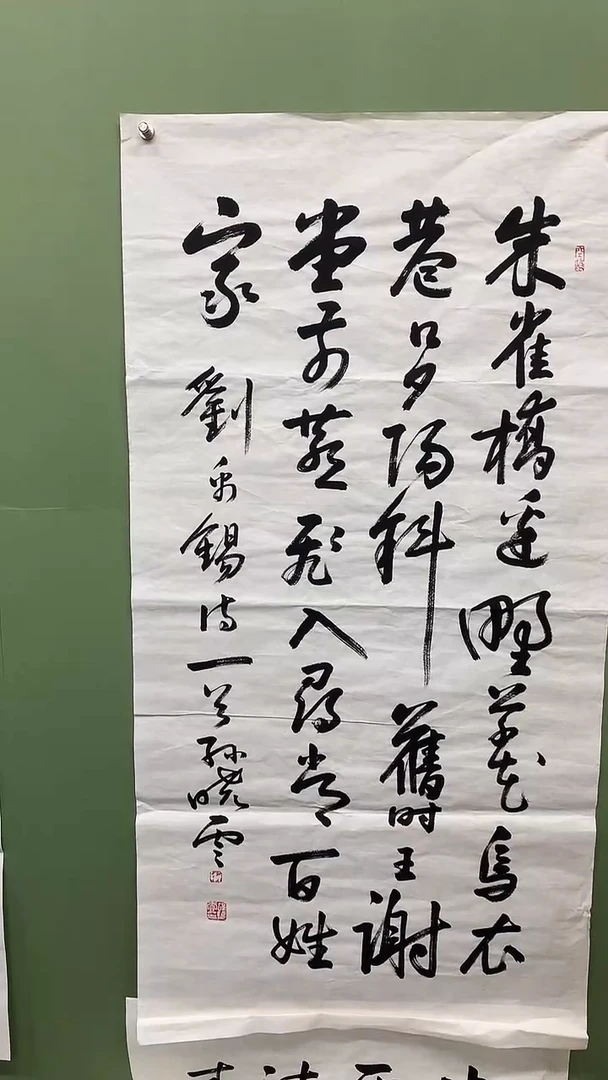 朱雀橋邊野草花烏衣
巷口夕陽斜舊时王謝
堂前燕飛入尋常百姓
家 劉禹錫詩一首孫曉雲